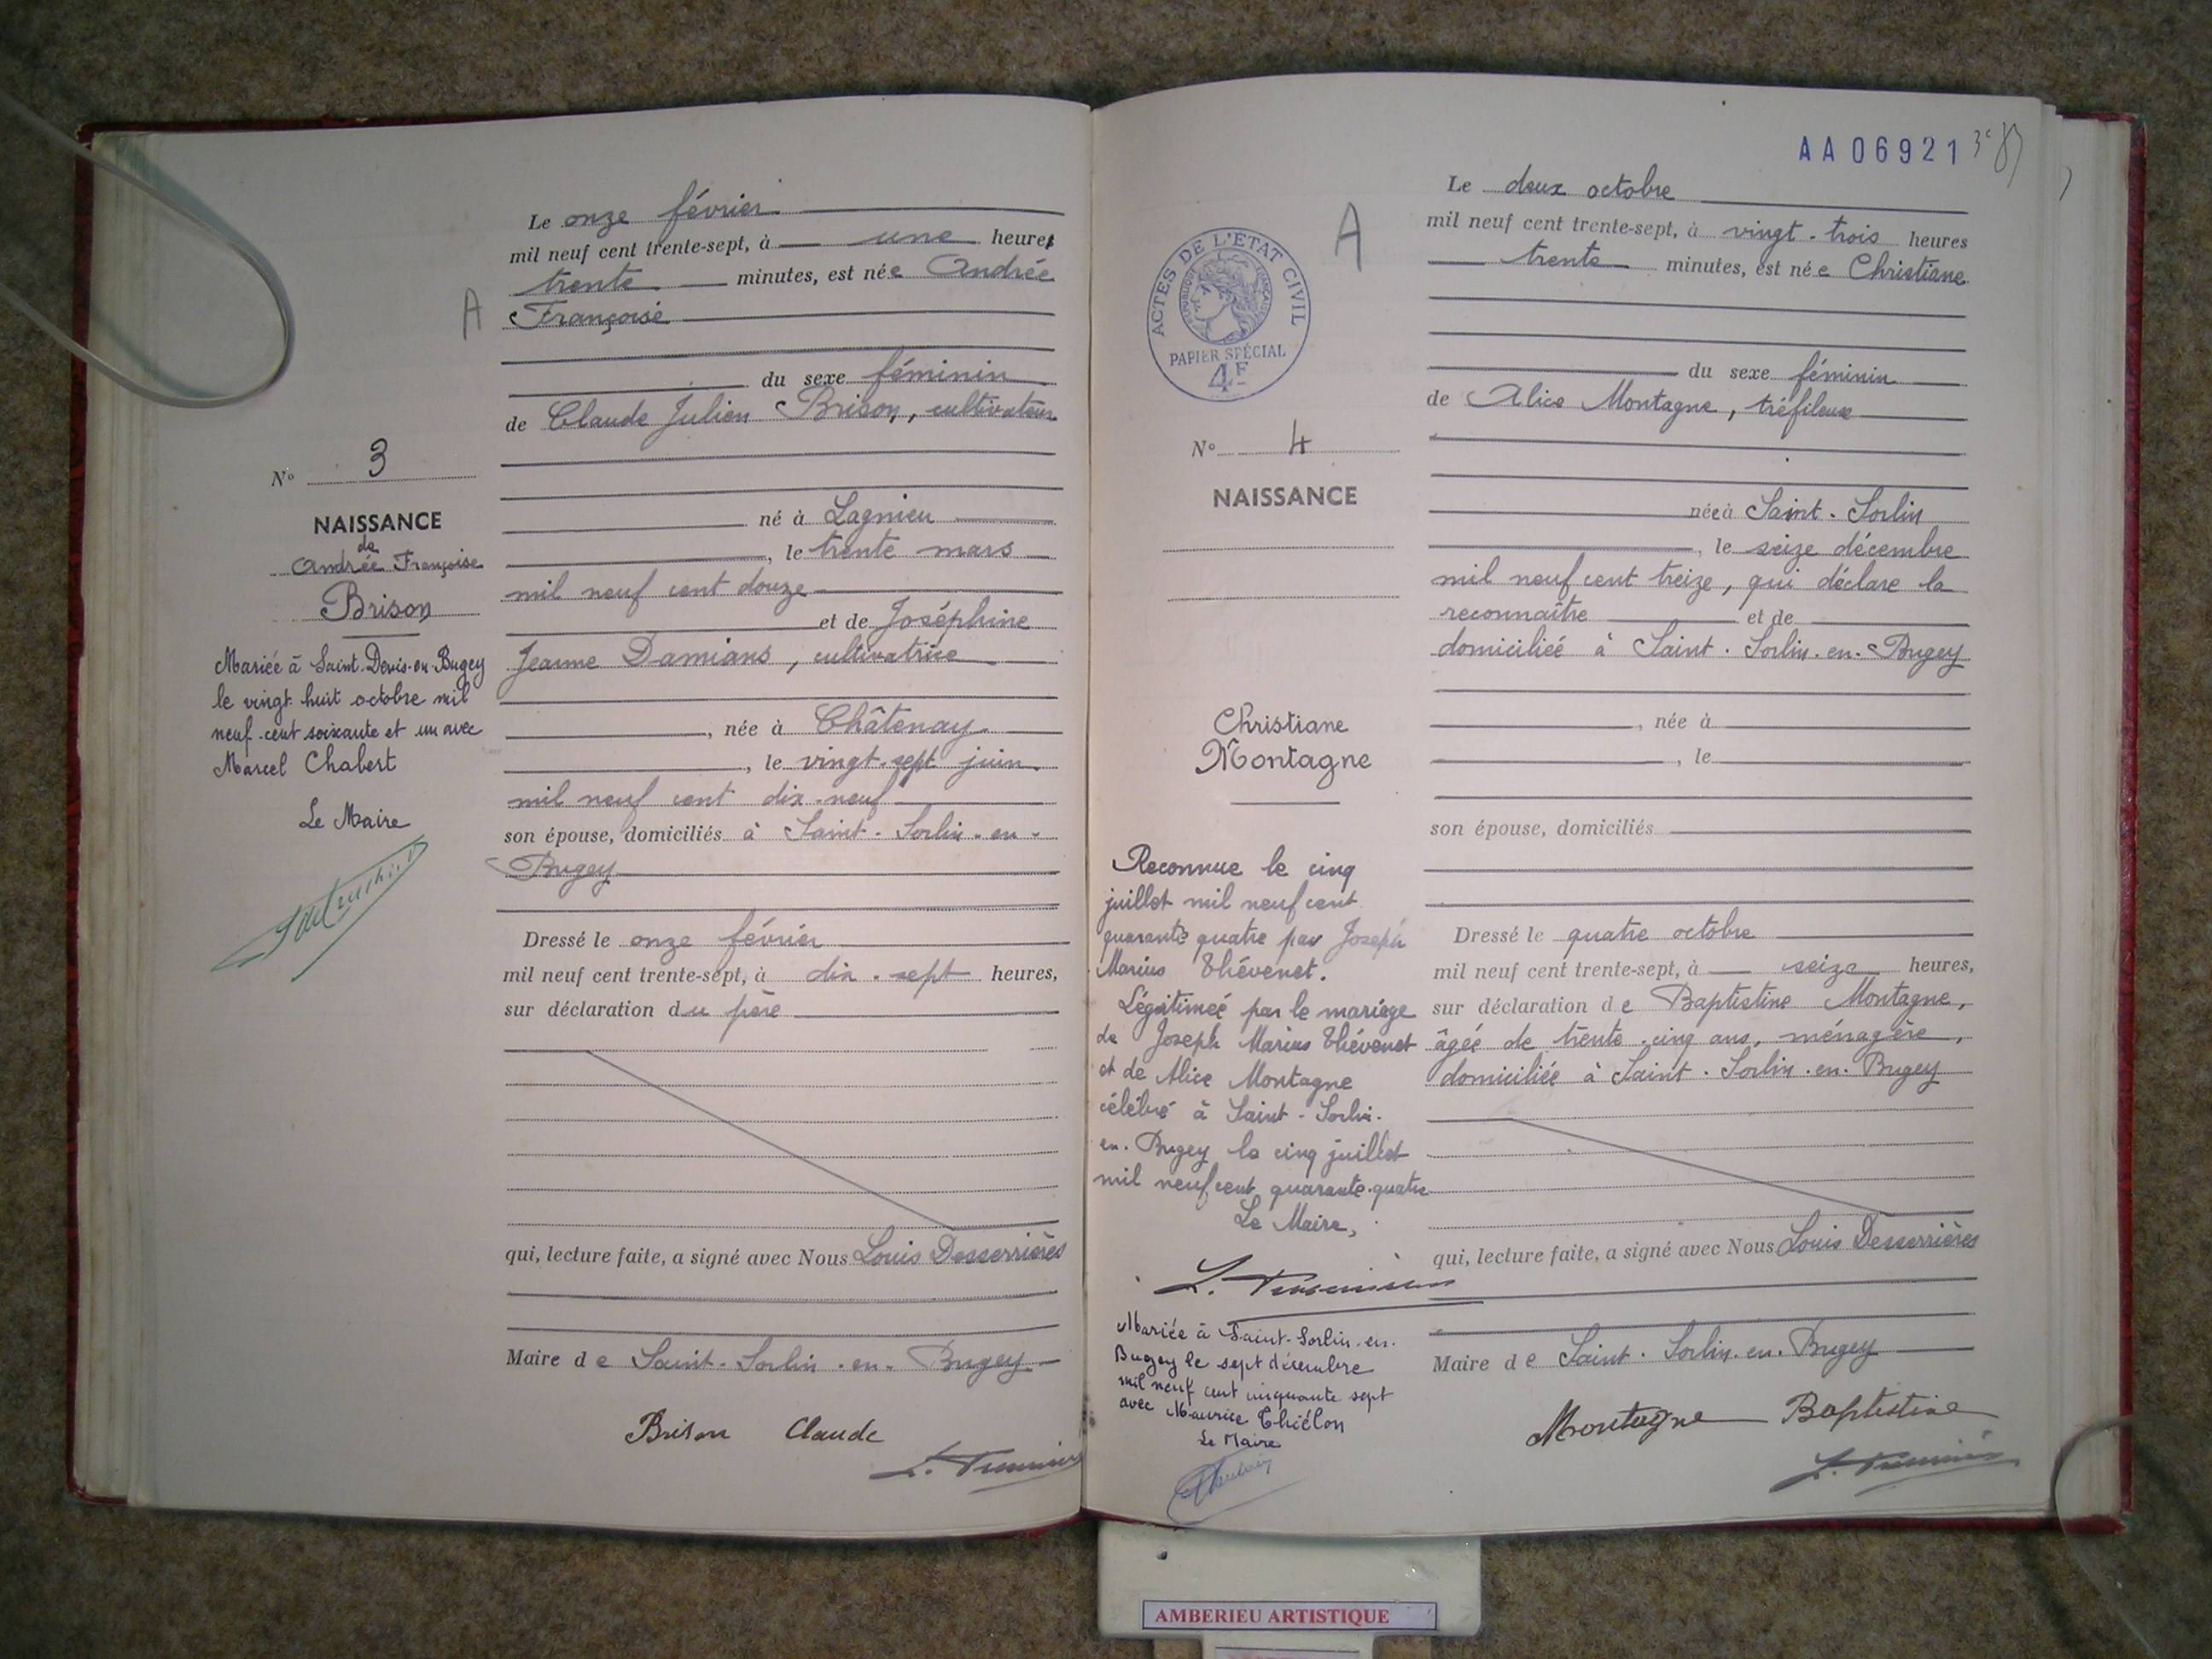 Le onze février
mil neuf cent trente-sept, à une heure
trente minutes, est née Andrée
A
Françoise
du sexe féminin
de Claude Julien Brison, cultivateur
né à Lagnieu
, le trente mars
mil neuf cent douze
et de Joséphine
Jeanne Damians, cultivatrice
, née à Châtenay
, le vingt-sept juin
mil neuf cent dix-neuf
son épouse, domiciliés à Saint-Sorlin-en-
Bugey
Dressé le onze février
mil neuf cent trente-sept, à dix-sept heures,
sur déclaration du père
qui, lecture faite, a signé avec Nous Louis Desserrières
Maire de Saint-Sorlin-en-Bugey
Brison Claude
No 3
NAISSANCE
de
Andrée Françoise
Brison
Mariée à Saint-Denis-en-Bugey
le vingt-huit octobre mil
neuf-cent soixante et un avec
Marcel Chabert
Le Maire
AA06921
A
ACTES DE L'ETAT CIVIL
REPUBLIQUE FRANÇAISE
PAPIER SPÉCIAL
4F
No 4
NAISSANCE
Christiane
Montagne
Reconnue le cinq
juillet mil neuf cent
quarante quatre par Joseph
Marius Thévenet.
Légitimée par le mariage
de Joseph Marius Thévenet
et de Alice Montagne
célébré à Saint-Sorlin-
en-Bugey le cinq juillet
mil neuf cent quarante-quatre
Le Maire,
Mariée à Saint-Sorlin-en-
Bugey le sept décembre
mil neuf cent cinquante sept
avec Maurice Thiélon
Le Maire
Le deux octobre
mil neuf cent trente-sept, à vingt-trois heures
trente minutes, est née Christiane
du sexe féminin
de Alice Montagne, tréfileuse
née à Saint-Sorlin
, le seize décembre
mil neuf cent treize, qui déclare la
reconnaître et de
domiciliée à Saint-Sorlin-en-Bugey
, née à
, le
son épouse, domiciliés
Dressé le quatre octobre
mil neuf cent trente-sept, à seize heures,
sur déclaration de Baptistine Montagne,
âgée de trente-cinq ans, ménagère,
domiciliée à Saint-Sorlin-en-Bugey
qui, lecture faite, a signé avec Nous Louis Desserrières
Maire de Saint-Sorlin-en-Bugey
Montagne Baptistine
AMBERIEU ARTISTIQUE